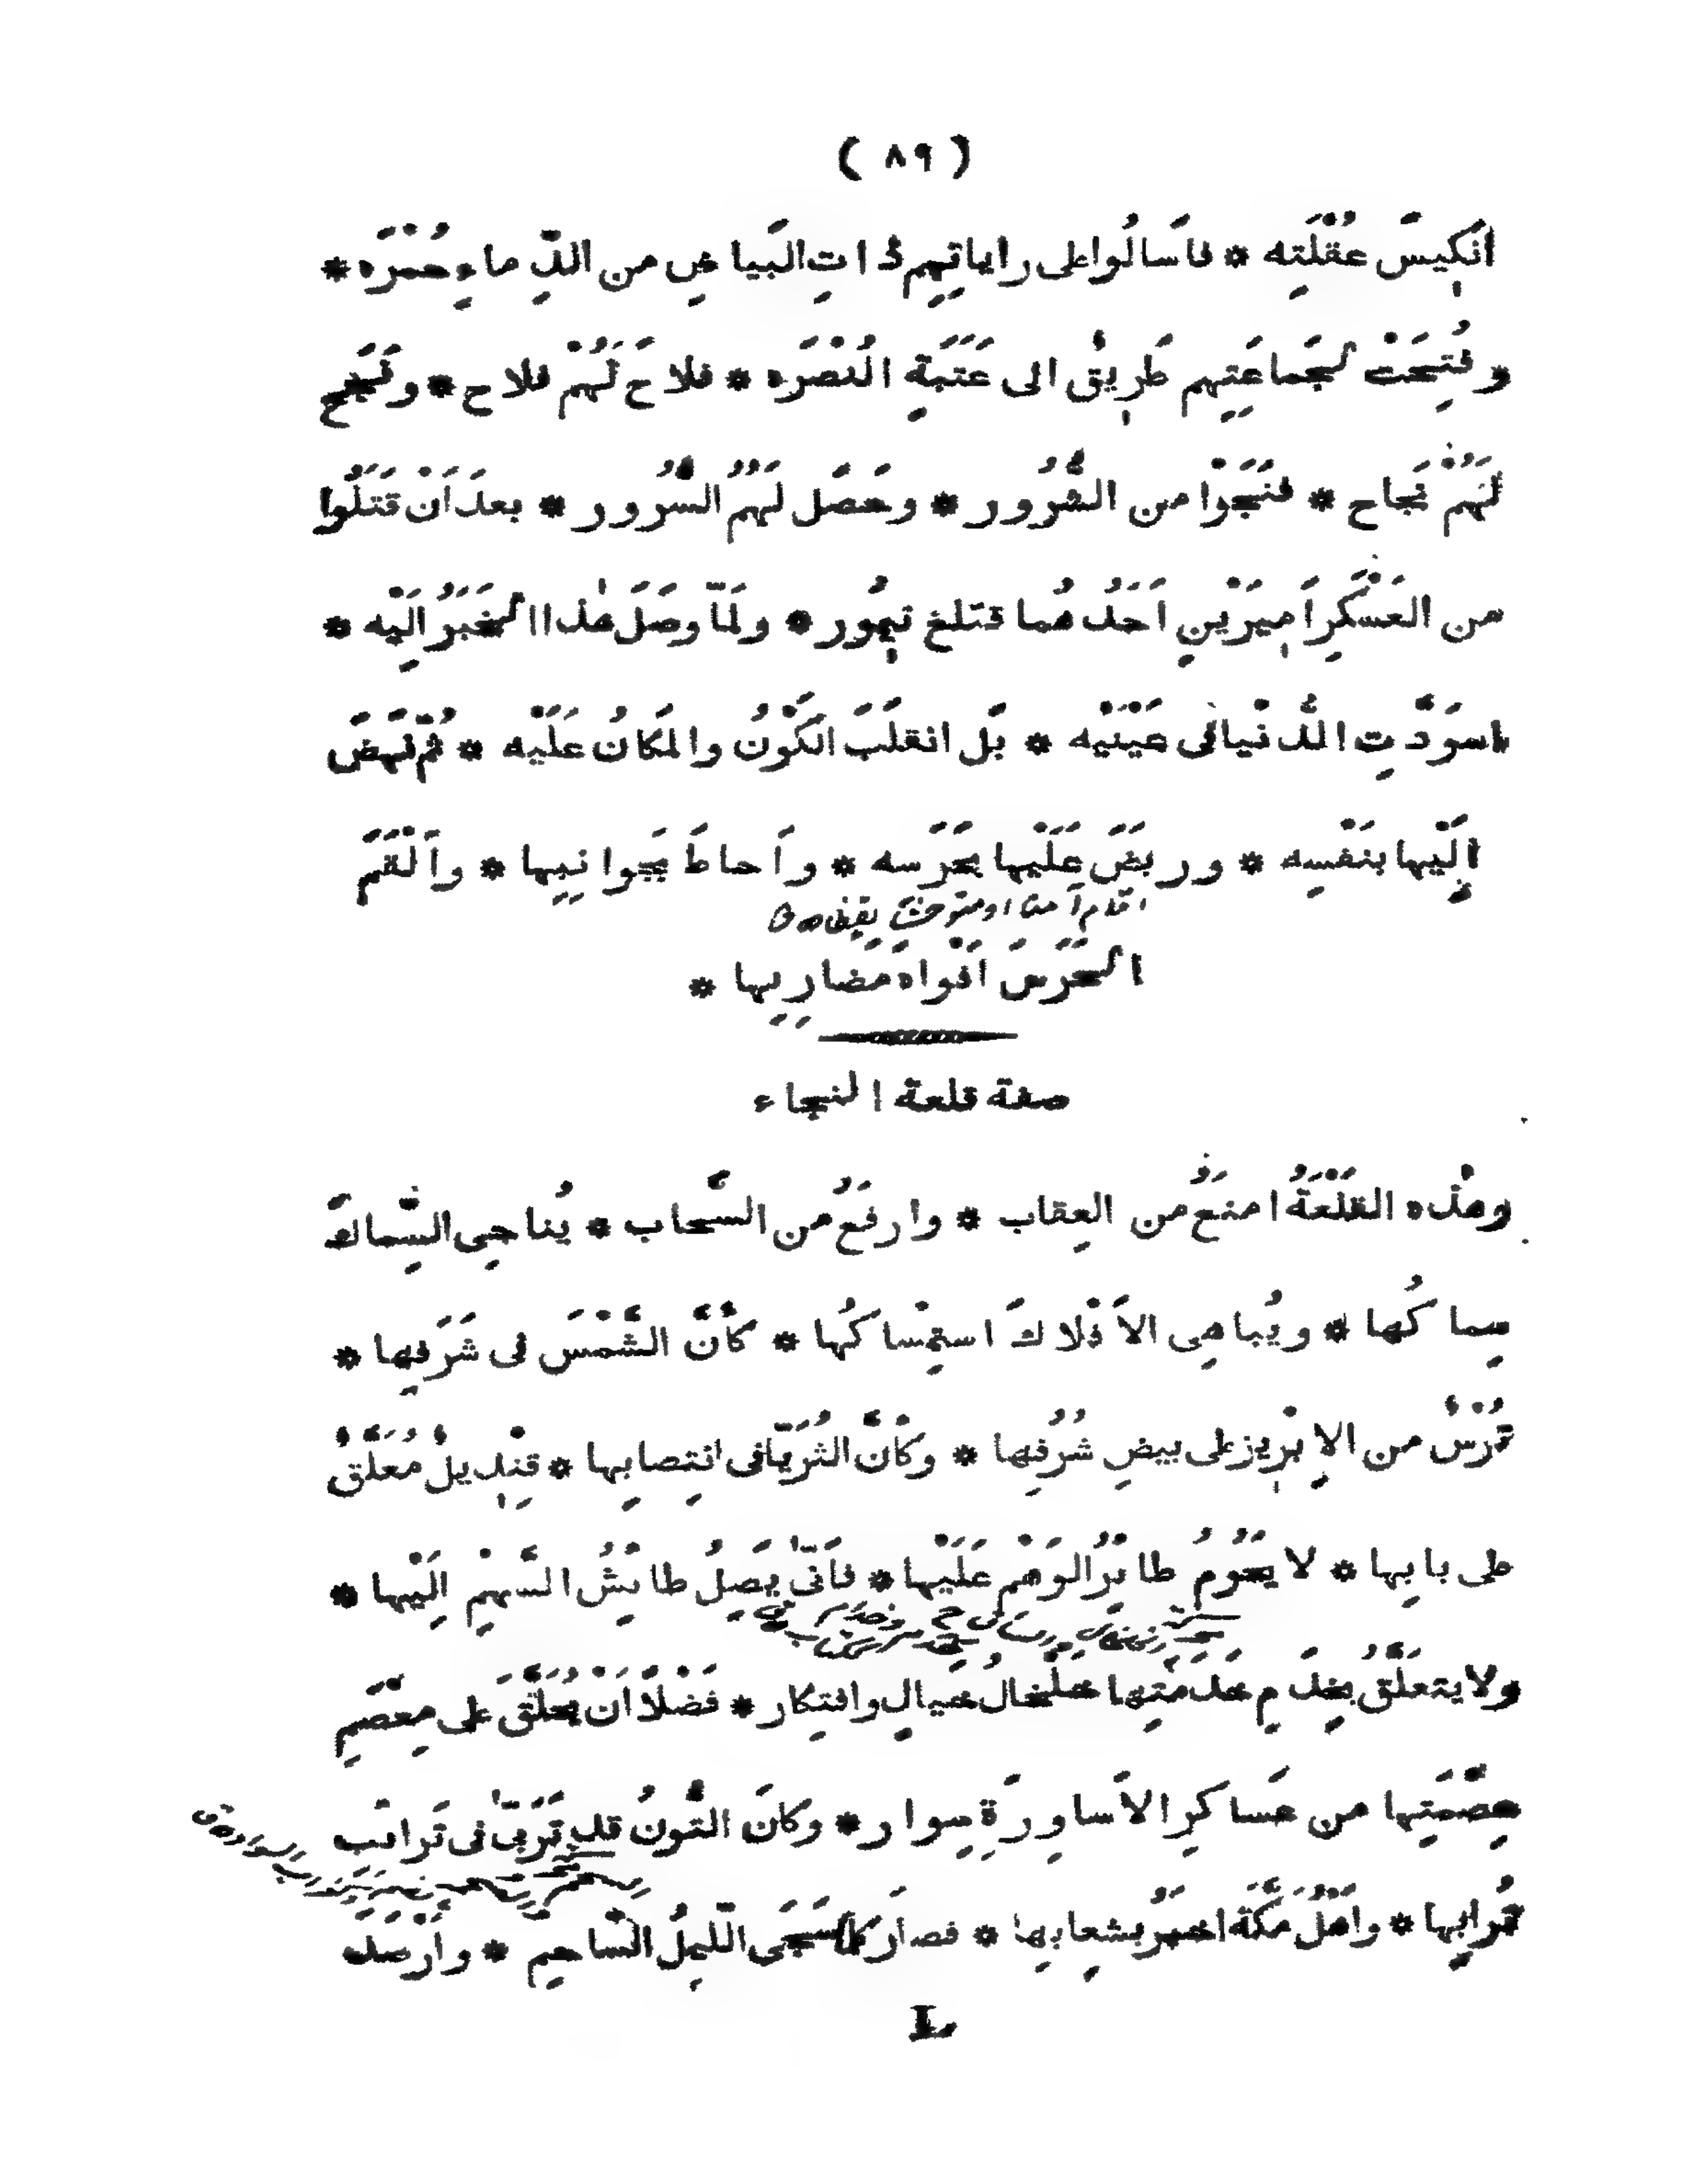 ( ٨٩ )
اَنْكِيسَ عُقْلَتِه * فاَسالُوا على راياتِهِم ذاتِ البَياضِ من الدِّماءِ حُمْرَه *
وفُتِحَتْ لجَماعَتِهم طَرِيقٌ الى عَتَبَةِ النُصْرَه * فلاحَ لَهُمْ فلاح * ونَجَحَ
لَهُمْ نَجاح * فنَجَوْا من الشُّرُور * وحَصَل لَهُمُ السُّرُور * بعدَ اَنْ قَتَلُوا
من العَسْكَرِ اَمِيرَيْنِ اَحَدُهُما قتلغ تيمُور * ولَمّا وصَلَ هٰذا الخَبَرُ اِلَيْه *
اسوَدَّتِ الدُّنْيا فى عَيْنَيْه * بَل انقلَبَ الكَوْنُ والمَكانُ عَلَيْه * ثمّ نَهَضَ
اِلَيْها بنَفْسِه * وربَضَ عَلَيْها بحَرَسه * واَحاطَ بجَوانِبِها * واَلْقَمَ
الحَرَسَ اَفْواهَ مَضارِبِها *
صفة قلعة النجاء
وهٰذه القَلْعَةُ امنَعُ من العِقاب * وارفَعُ من السَّحاب * يُناجِى السِّماكَ
سِماكُها * ويُباهِى الاَفْلاكَ استِمْساكُها * كاَنَّ الشَّمْسَ فى شَرَفِها *
تُرْسٌ من الاِبْرِيز على بيضِ شُرُفِها * وكاَنَّ الثُرَيّا فى انتِصابِها * قِنْدِيلٌ مُعَلَّقٌ
على بابِها * لا يَحُومُ طائرُ الوَهْمِ عَلَيْها * فاَنّىٰ يَصِلُ طائشُ السَّهْمِ اِلَيْها *
ولا يتعلَّقُ بخِدَمِ خَدَمَتِها خلخالُ خَيالٍ وافتِكار * فَضْلاً اَنْ يُحَلِّقَ على مِعْصَمِ
عِصْمَتِها من عَساكِرِ الاَساوِرَةِ سِوار * وكانَ التُونُ قد تَرَبّىٰ فى تَرائب
تُرابِها * واَهْلُ مَكَّةَ اخبَرُ بشِعابِها * فصارَ كلّما سَجَى اللّيلُ السّاجِم * واَرْصَد
L